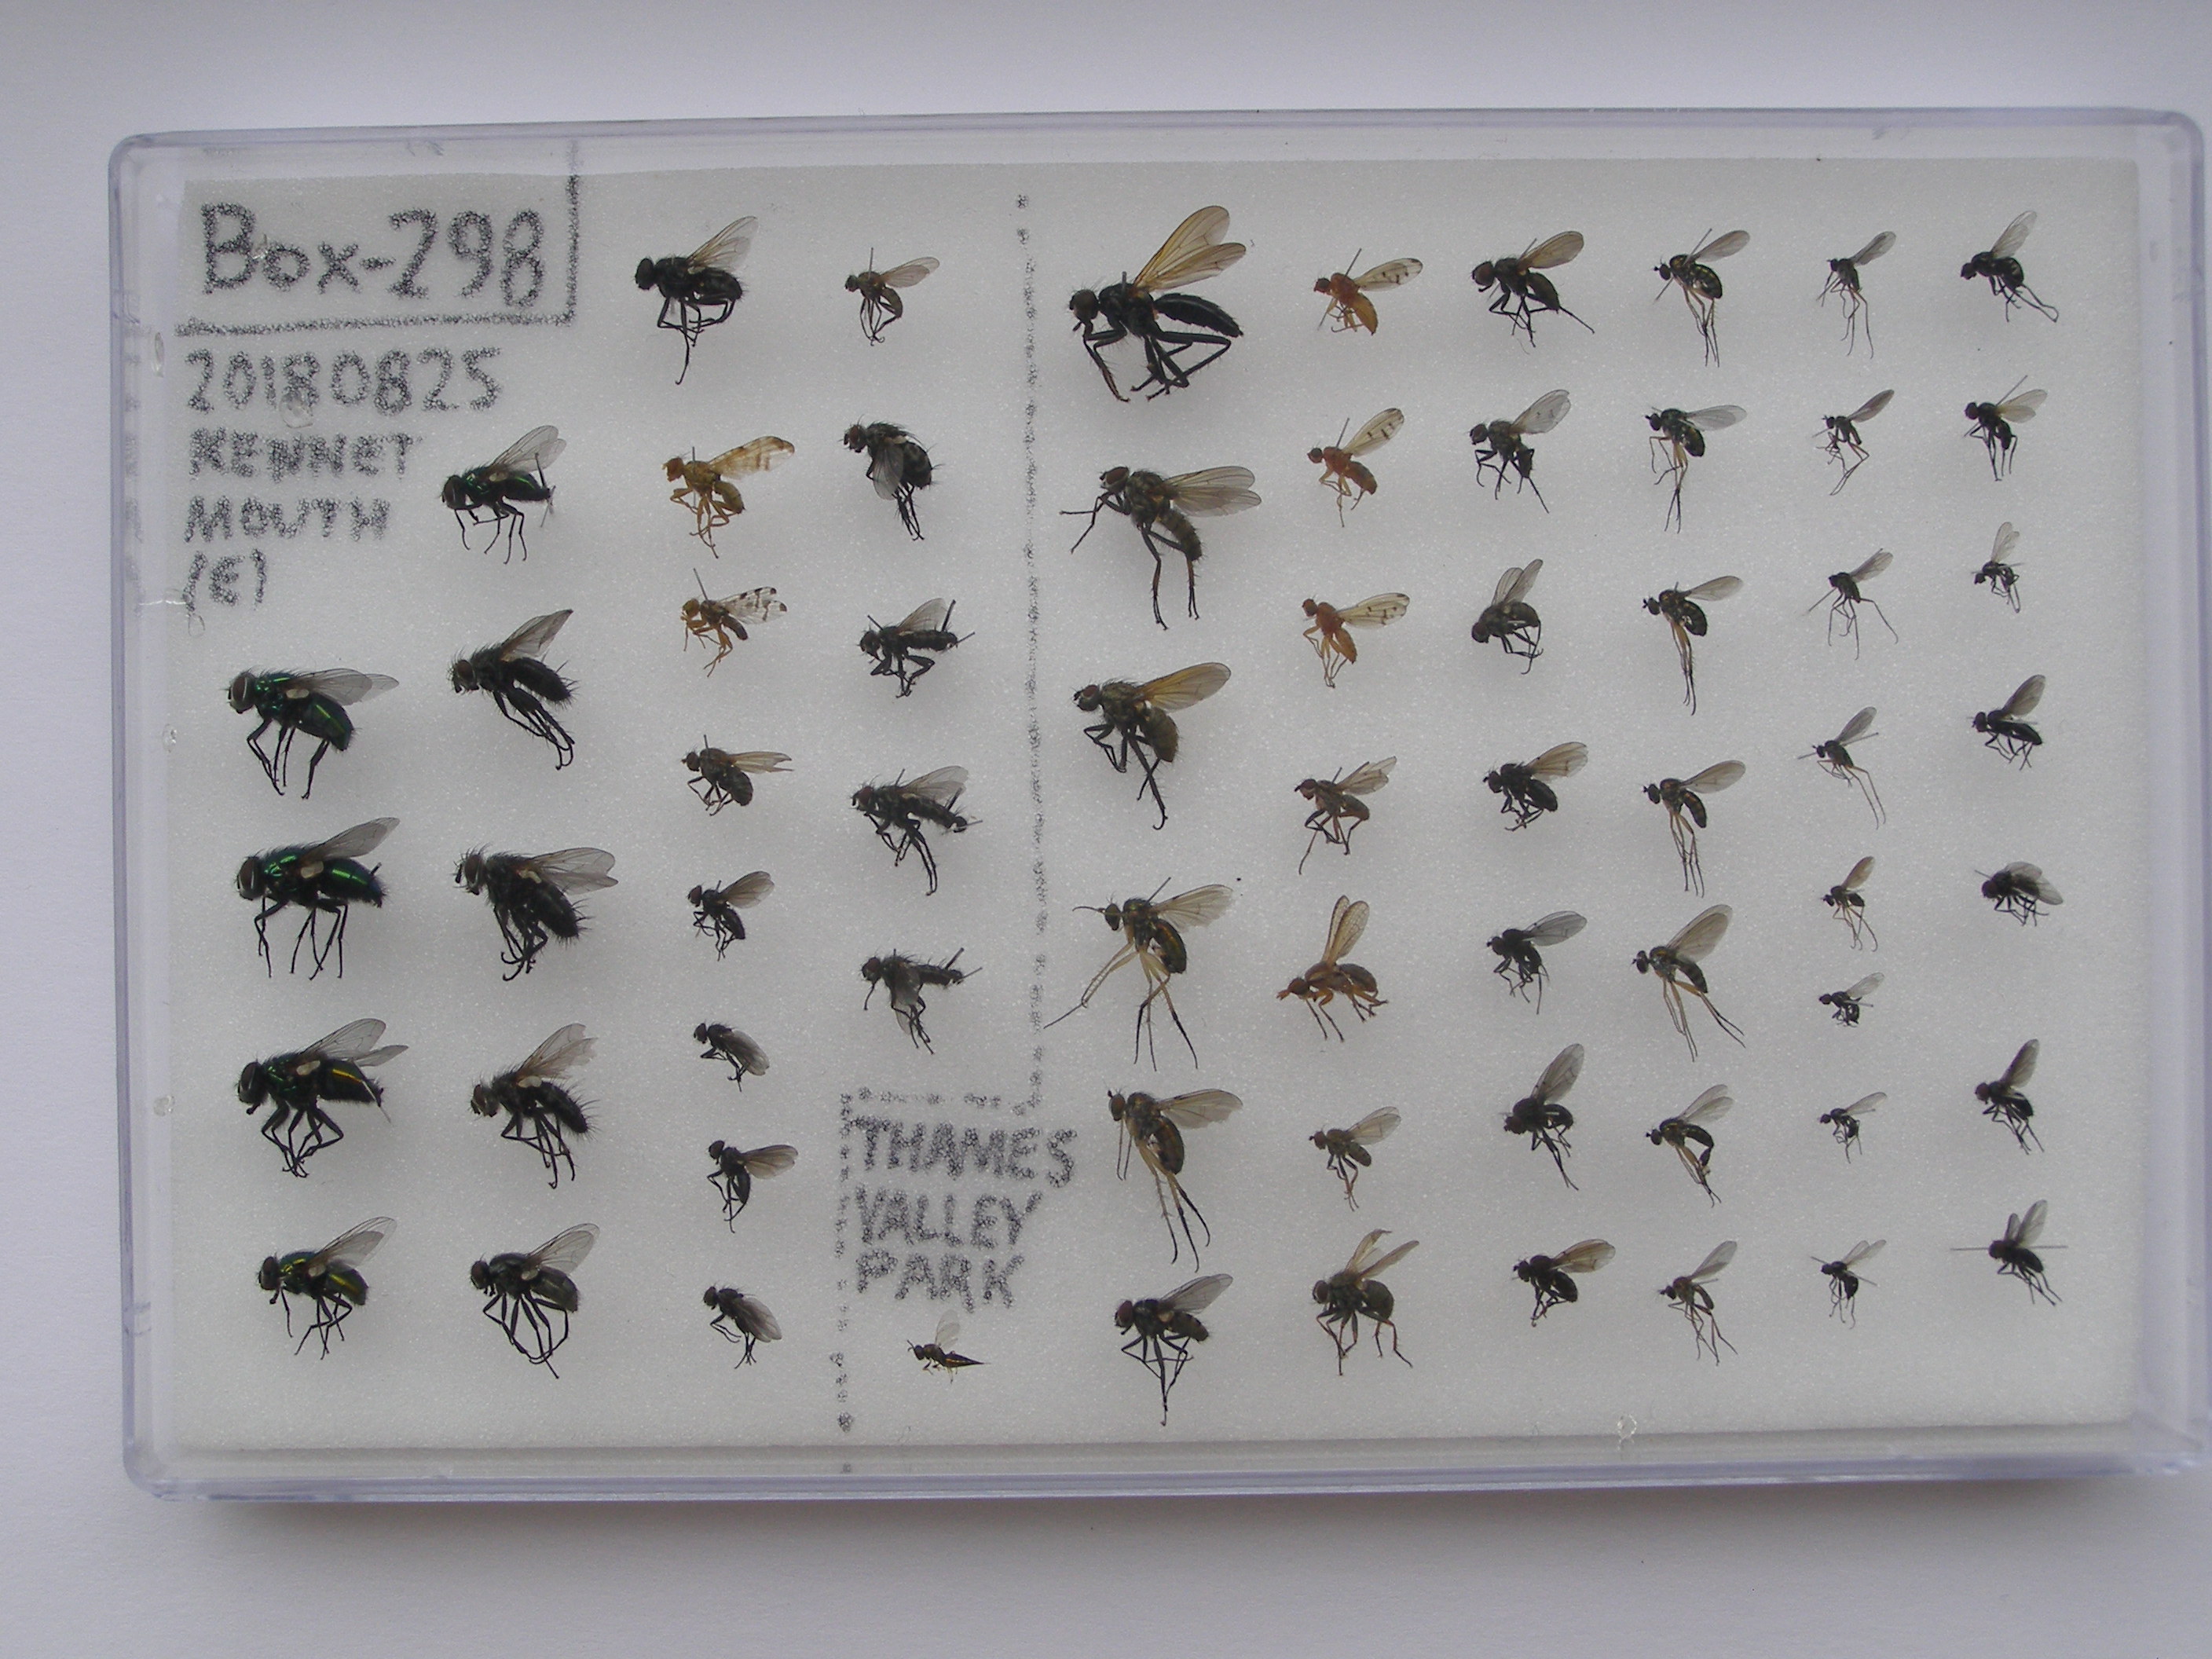 Box-298
20180825
KENNET
MOUTH
(E)
THAMES
VALLEY
PARK